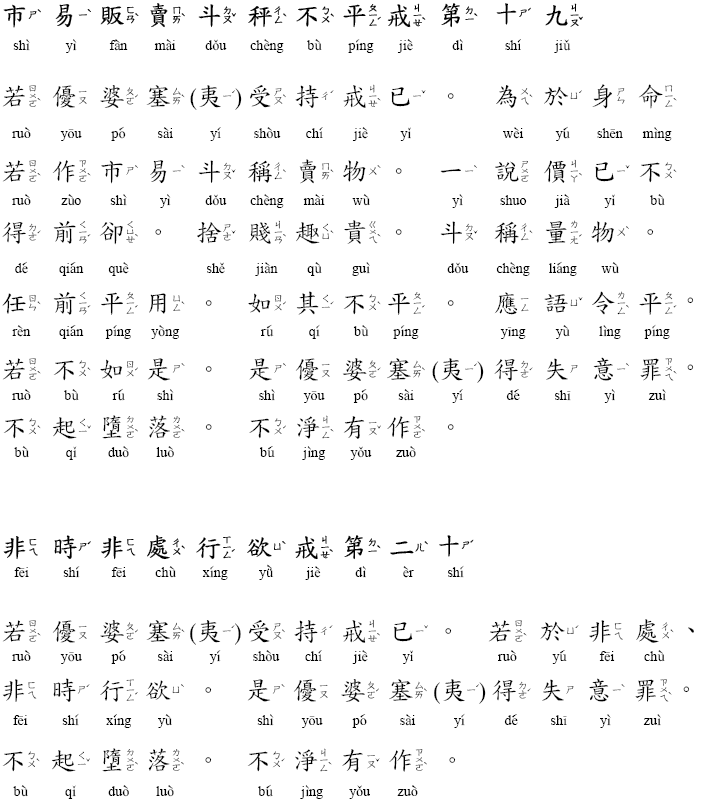 市ㄕˋ易ㄧˋ販ㄈㄢˋ賣ㄇㄞˋ斗ㄉㄡˇ秤ㄔㄥˋ不ㄅㄨˋ平ㄆㄧㄥˊ戒ㄐㄧㄝˋ第ㄉㄧˋ十ㄕˊ九ㄐㄧㄡˇ
shì yì fàn mài dǒu chèng bù píng jiè dì shí jiǔ
若ㄖㄨㄛˋ優ㄧㄡ婆ㄆㄛˊ塞ㄙㄞˋ(夷ㄧˊ)受ㄕㄡˋ持ㄔˊ戒ㄐㄧㄝˋ已ㄧˇ。為ㄨㄟˋ於ㄩˊ身ㄕㄣ命ㄇㄧㄥˋ
ruò yōu pó sài yí shòu chí jiè yǐ wèi yú shēn mìng
若ㄖㄨㄛˋ作ㄗㄨㄛˋ市ㄕˋ易ㄧˋ斗ㄉㄡˇ稱ㄔㄥˋ賣ㄇㄞˋ物ㄨˋ。一ㄧˋ說ㄕㄨㄛ價ㄐㄧㄚˋ已ㄧˇ不ㄅㄨˋ
ruò zuò shì yì dǒu chèng mài wù yì shuo jià yǐ bù
得ㄉㄜˊ前ㄑㄧㄢˊ卻ㄑㄩㄝˋ。捨ㄕㄜˇ賤ㄐㄧㄢˋ趣ㄑㄩˋ貴ㄍㄨㄟˋ。斗ㄉㄡˇ稱ㄔㄥˋ量ㄌㄧㄤˊ物ㄨˋ。
dé qián què shě jiàn qù guì dǒu chèng liáng wù
任ㄖㄣˋ前ㄑㄧㄢˊ平ㄆㄧㄥˊ用ㄩㄥˋ。如ㄖㄨˊ其ㄑㄧˊ不ㄅㄨˋ平ㄆㄧㄥˊ。應ㄧㄥ語ㄩˋ令ㄌㄧㄥˋ平ㄆㄧㄥˊ。
rèn qián píng yòng rú qí bù píng ying yù lìng píng
若ㄖㄨㄛˋ不ㄅㄨˋ如ㄖㄨˊ是ㄕˋ。是ㄕˋ優ㄧㄡ婆ㄆㄛˊ塞ㄙㄞˋ(夷ㄧˊ)得ㄉㄜˊ失ㄕ意ㄧˋ罪ㄗㄨㄟˋ。
ruò bù rú shì shì yōu pó sài yí dé shī yì zuì
不ㄅㄨˋ起ㄑㄧˇ墮ㄉㄨㄛˋ落ㄌㄨㄛˋ。不ㄅㄨˊ淨ㄐㄧㄥˋ有ㄧㄡˇ作ㄗㄨㄛˋ。
bù qǐ duò luò bú jìng yǒu zuò
非ㄈㄟ時ㄕˊ非ㄈㄟ處ㄔㄨˋ行ㄒㄧㄥˊ欲ㄩˋ戒ㄐㄧㄝˋ第ㄉㄧˋ二ㄦˋ十ㄕˊ
fēi shí fēi chù xíng yǜ jiè dì èr shí
若ㄖㄨㄛˋ優ㄧㄡ婆ㄆㄛˊ塞ㄙㄞˋ(夷ㄧˊ)受ㄕㄡˋ持ㄔˊ戒ㄐㄧㄝˋ已ㄧˇ。若ㄖㄨㄛˋ於ㄩˊ非ㄈㄟ處ㄔㄨˋ、
ruò yōu pó sài yí shòu chí jiè yǐ ruò yú fēi chù
非ㄈㄟ時ㄕˊ行ㄒㄧㄥˊ欲ㄩˋ。是ㄕˋ優ㄧㄡ婆ㄆㄛˊ塞ㄙㄞˋ(夷ㄧˊ)得ㄉㄜˊ失ㄕ意ㄧˋ罪ㄗㄨㄟˋ。
fēi shí xíng yù shì yōu pó sài yí dé shī yì zuì
不ㄅㄨˋ起ㄑㄧˇ墮ㄉㄨㄛˋ落ㄌㄨㄛˋ。不ㄅㄨˊ淨ㄐㄧㄥˋ有ㄧㄡˇ作ㄗㄨㄛˋ。
bù qǐ duò luò bú jìng yǒu zuò